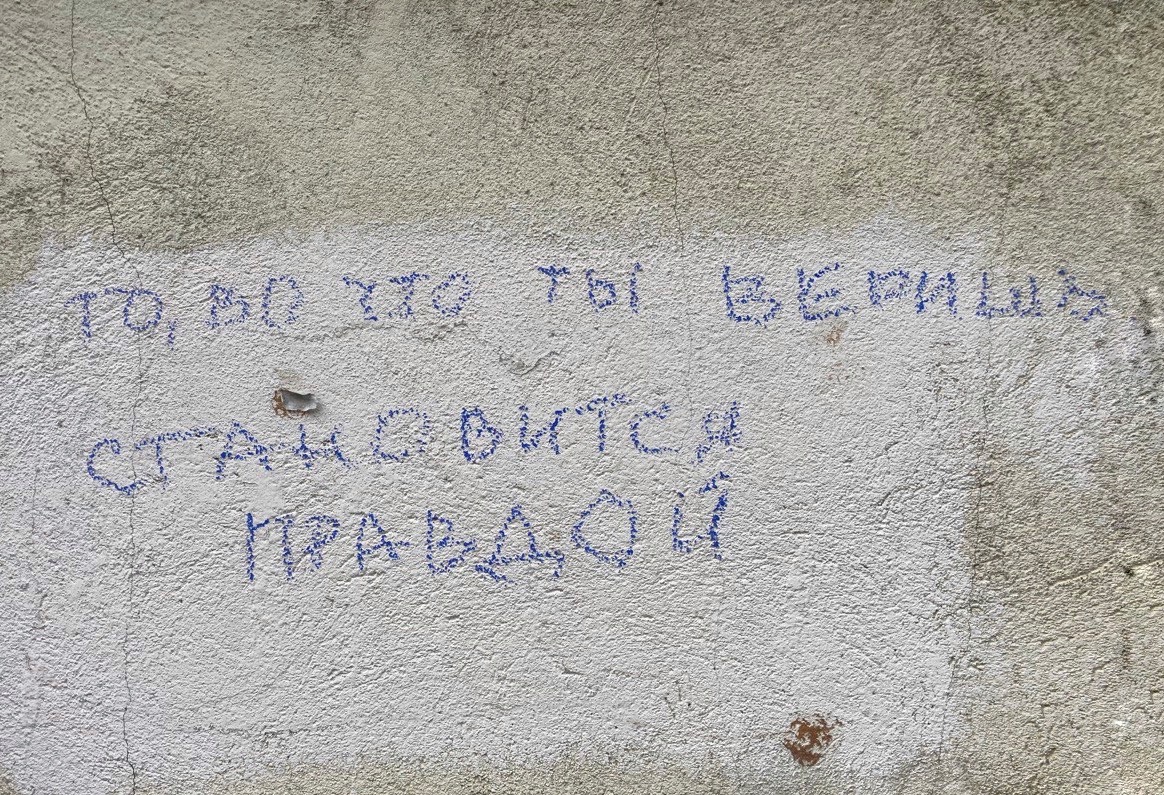 ТО, ВО ЧТО ТЫ ВЕРИШЬ
СТАНОВИТСЯ
ПРАВДОЙ